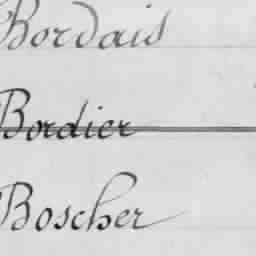 Bordais
Bordier
Boscher